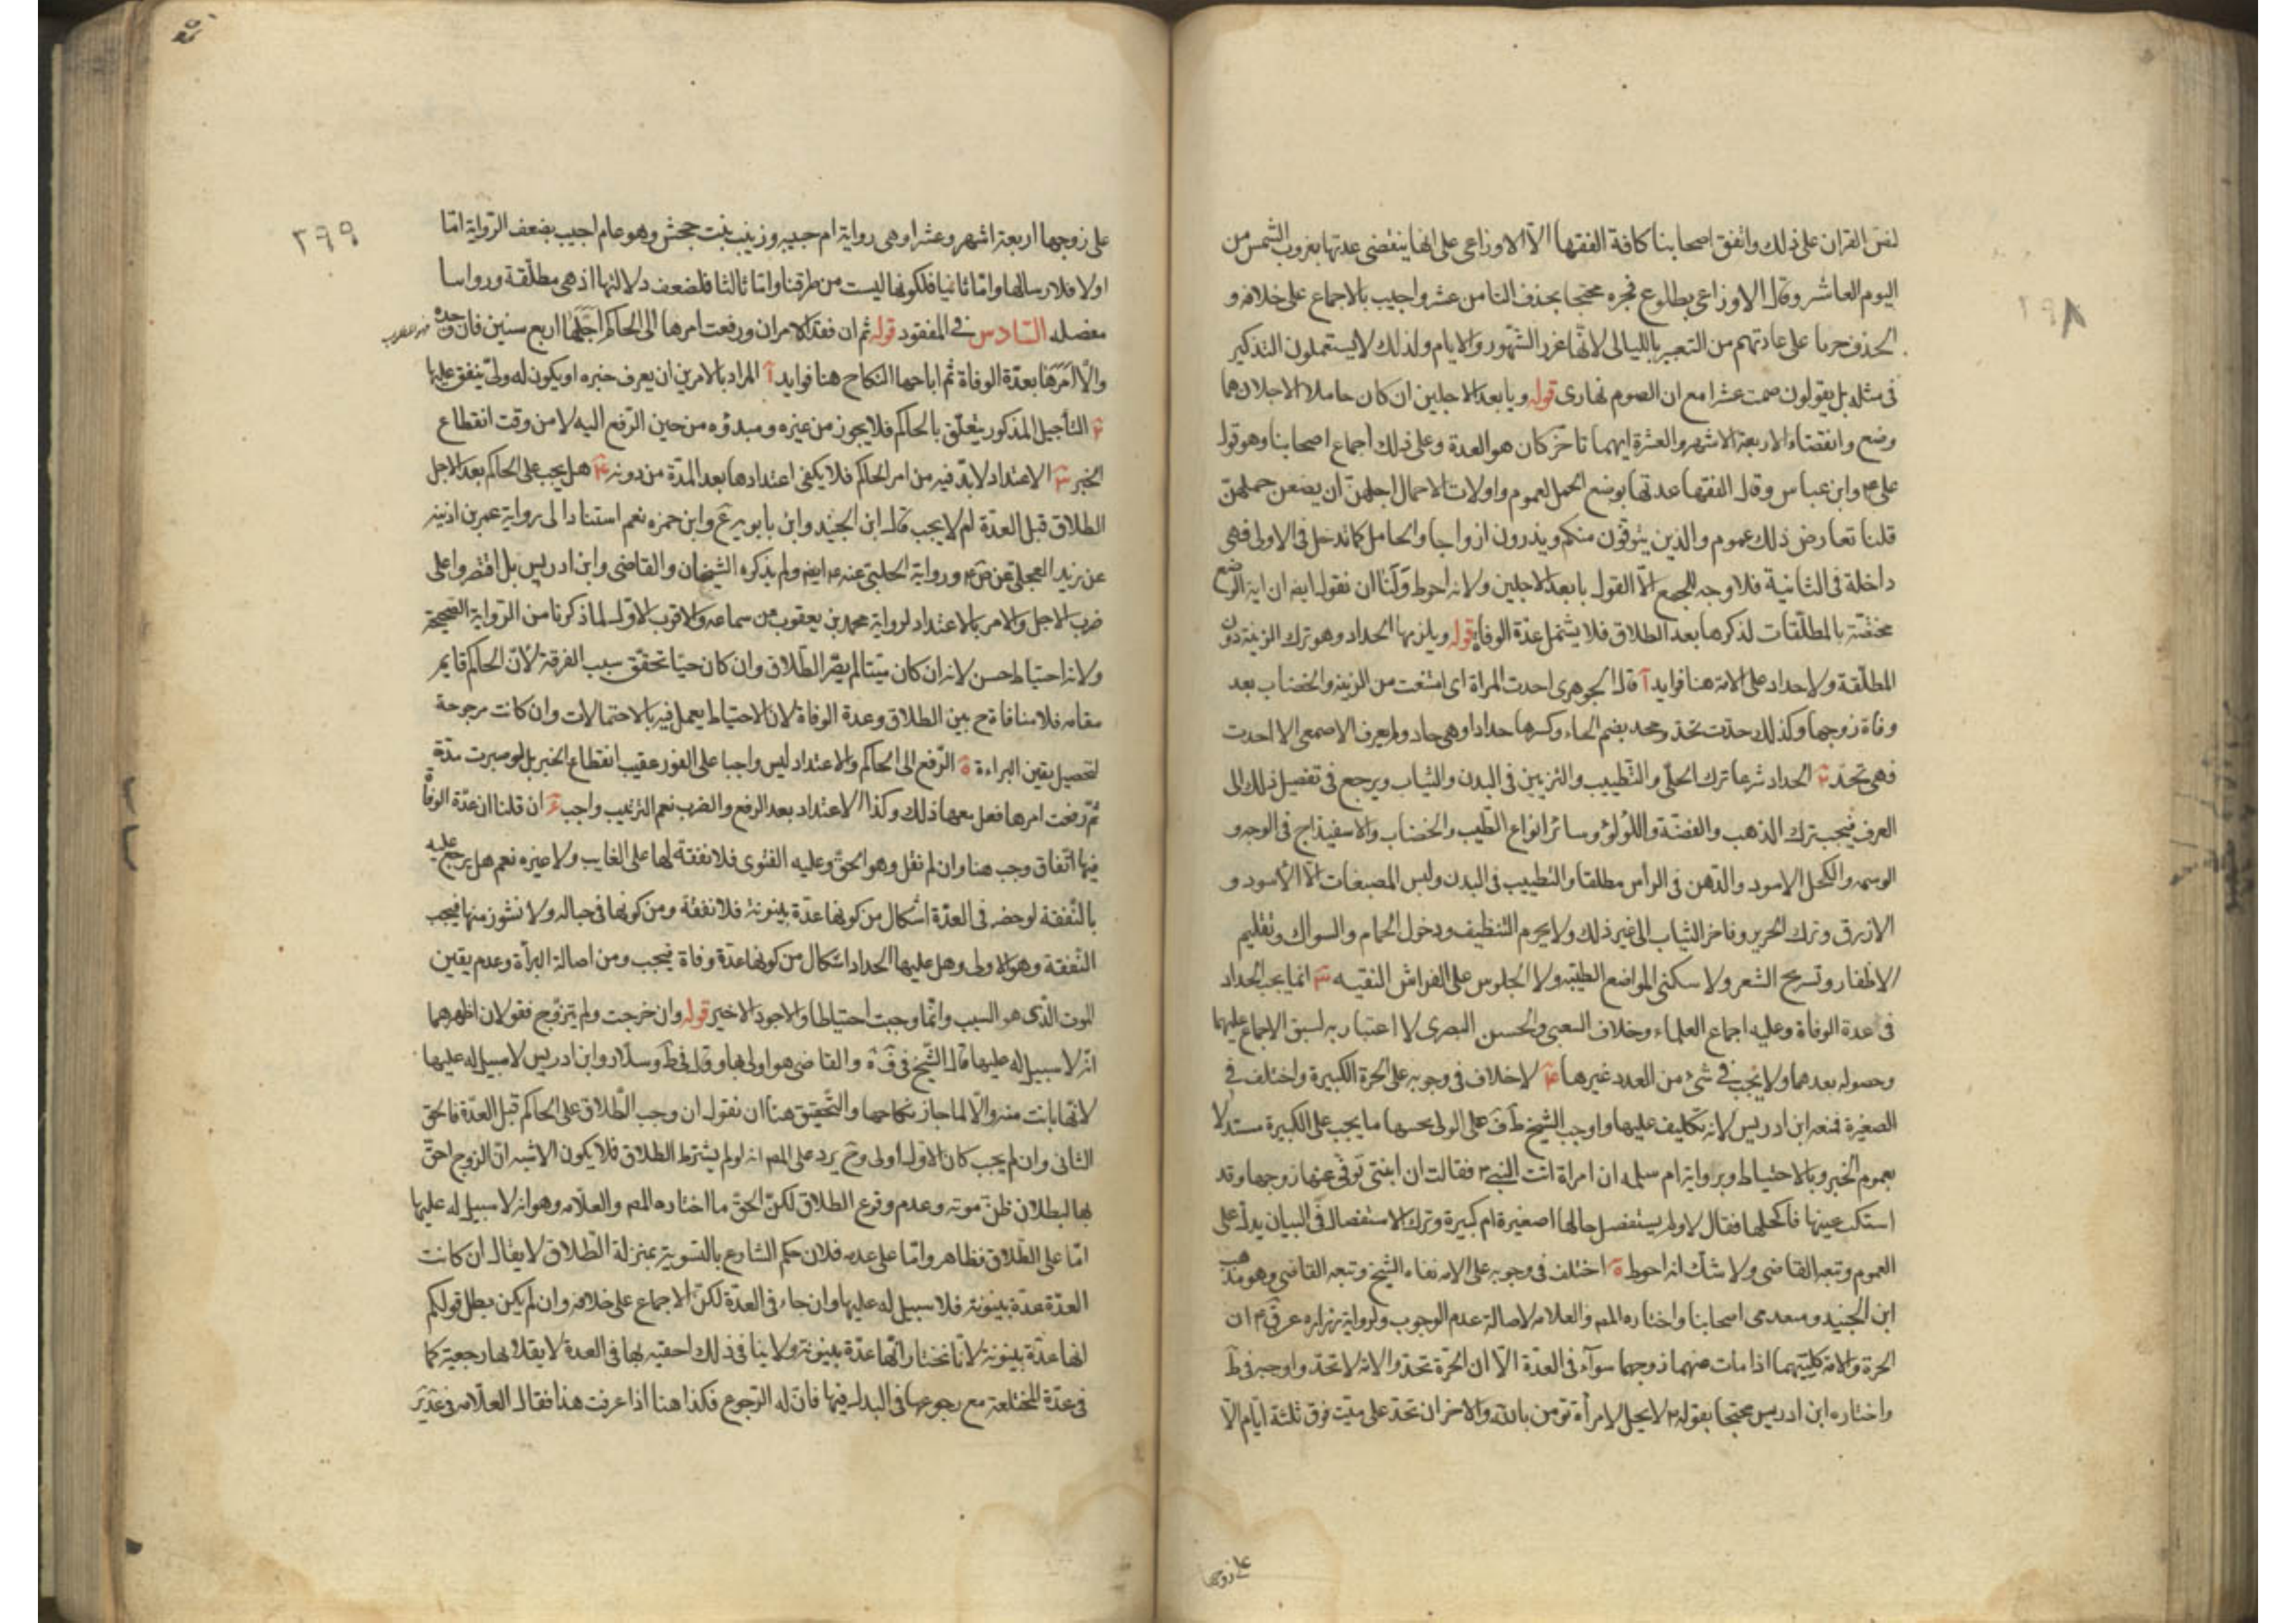 ٢٩٨
لنص القران على ذلك واتفق اصحابنا كافة الفقها الا الاوزاعى على انها ينقضى عدتها بغروب الشمس من
اليوم العاشر وقال الاوزاعى بطلوع فجره محتجا بحذف التا من عشر واجيب بالاجماع على خلافه و
الحذف جريا على عادتهم من التعبير بالليالى لانها غرر الشهور والايام ولذلك لا يستعملون التذكير
فى مثله بل يقولون صمت عشرا مع ان الصوم نهارى قوله وبابعد الاجلين ان كان حاملا الاجلان هما
وضع وانقضاء الاربعة الاشهر والعشرة ايهما تاخر كان هو العدة وعلى ذلك اجماع اصحابنا وهو قول
على ع وابن عباس وقال الفقها عدتها بوضع الحمل لعموم واولات الاحمال اجلهن ان يضعن حملهن
قلنا تعارض ذلك عموم والذين يتوفون منكم ويذرون ازواجا والحامل كما تدخل فى الاولى فهى
داخلة فى الثانية فلا وجه للجمع الا القول بابعد الاجلين ولانه احوط ولنا ان نقول ايض ان اية الوضع
مختصة بالمطلقات لذكرها بعد الطلاق فلا يشتمل عدة الوفاة قوله ويلزمها الحداد وهو ترك الزينة دون
المطلقة ولا حداد على الامة هنا فوايد آ قال الجوهرى احدت المراة اى امتنعت من الزينة والخضاب بعد
وفاة زوجها وكذلك حدت تحد وتحد بضم الحاء وكسرها حدادا وهى حاد ولم يعرف الاصمعى الا احدت
فهى تحد ب الحداد شرعا ترك الحلى والتطييب والتزيين فى البدن والثياب ويرجع فى تفصيل ذلك الى
العرف فيجب ترك الذهب والفضة واللولؤ وسائر انواع الطيب والخضاب والاسفيذاج فى الوجه و
الوسمه والكحل الاسود والدهن فى الراس مطلقا والتطييب فى البدن ولبس المصبغات الا الاسود و
الازرق وترك الحرير وفاخر الثياب الى غير ذلك ولا يحرم التنظيف ودخول الحمام والسواك وتقليم
الاظفار وتسريح الشعر ولا سكنى المواضع الطيبه ولا الجلوس على الفراش النقيه ج انما يجب الحداد
فى عدة الوفاة وعليه اجماع العلماء وخلاف الشعبى والحسن البصرى لا اعتبار به لسبق الاجماع عليهما
وحصوله بعدهما ولا يجب فى شىء من العدد غيرها د لا خلاف فى وجوبه على الحرة الكبيرة واختلف فى
الصغيرة فمنعه ابن ادريس لانه تكليف عليها واوجب الشيخ ط ف على الولى بحسبها ما يجب على الكبيرة مستدلا
بعموم الخبر وبالاحتياط وبرواية ام سلمه ان امراة اتت النبى ص فقالت ان ابنتى توفى عنها زوجها وقد
اشتكت عينها فاكحلها فقال لا ولم يستفصل حالها اصغيرة ام كبيرة وترك الاستفصال فى البيان يدل على
العموم وتبعه القاضى ولا شك انه احوط ه اختلف فى وجوبه على الامة نفاه الشيخ وتبعه القاضى وهو مذهب
ابن الجنيد و من اصحابنا واختاره المص والعلامه لاصالة عدم الوجوب ولرواية زراره عن ق ع ان
الحرة والامة كليتهما اذا مات عنهما زوجهما سواء فى العدة الا ان الحرة تحد والامة لا تحد واوجبه فى ط
واختاره ابن ادريس محتجا بقوله ص لا يحل لامرأة تومن بالله والاخر ان تحد على ميت فوق ثلثة ايام الا
على زوجها
٢٩٩
على زوجها اربعة اشهر وعشرا وهى رواية ام حبيبه وزينب بنت جحش وهو عام اجيب بضعف الرواية اما
اولا فلارسالها واما ثانيا فلكونها ليست من طرقنا واما ثالثا فلضعف دلالتها اذ هى مطلقة وروايتنا
مفصله السادس فى المفقود قوله ثم ان فقد الامران ورفعت امرها الى الحاكم اجلها اربع سنين فان وجده
والا امرها بعدة الوفاة ثم اباحها النكاح هنا فوايد آ المراد بالامرين ان يعرف خبره او يكون له ولى ينفق عليها
ب التأجيل المذكور يتعلق بالحاكم فلا يجوز من غيره ومبدؤه من حين الرفع اليه لا من وقت انقطاع
الخبر ج الاعتداد لابد فيه من امر الحاكم فلا يكفى اعتدادها بعد المدة من دونه د هل يجب على الحاكم بعد الاجل
الطلاق قبل العدة ام لا يجب قال ابن الجنيد وابن بابويه وابن حمزه نعم استنادا الى رواية عمر بن اذينه
عن بريد العجلى عن ق ع ورواية الحلبى عنه ع ايض ولم يذكره الشيخان والقاضى وابن ادريس بل اقتصروا على
ضرب الاجل والامر بالاعتداد لرواية محمد بن يعقوب عن سماعه والاقرب الاول لما ذكرنا من الرواية الصحيحة
ولانه احتياط حسن لانه ان كان ميتا لم يضر الطلاق وان كان حيا تحقق سبب الفرقة لان الحاكم قايم
مقامه فلا منافاة ح بين الطلاق وعدة الوفاة لان الاحتياط يعمل فيه بالاحتمالات وان كانت مرجوحة
لتحصيل يقين البراءة ه الرفع الى الحاكم والاعتداد ليس واجبا على الفور عقيب انقطاع الخبر بل لو صبرت مدة
ثم رفعت امرها فعل معها ذلك وكذا الاعتداد بعد الرفع والضرب نعم الترتيب واجب و ان قلنا ان عدة الوفاة
فيها انفاق وجب هنا وان لم نقل وهو الحق وعليه الفتوى فلا نفقة لها على الغايب ولا غيره نعم هل يرجع عليه
بالنفقة لو حضر فى العدة اشكال من كونها عدة بينونة فلا نفقة ومن كونها فى حباله ولا نشوز منها فيجب
النفقة وهو الاولى وهل عليها الحداد اشكال من كونها عدة وفاة فيجب ومن اصالة البرأة وعدم يقين
الموت الذى هو السبب وانما وجبت احتياطا والاجود الاخير قوله وان خرجت ولم تتزوج فقولان اظهرهما
انه لا سبيل له عليها قال الشيخ فى ف والقاضى هو اولى بها وقال فى ط وسلار وابن ادريس لا سبيل له عليها
لانها بانت منه والا لما جاز نكاحها والتحقيق هنا ان نقول ان وجب الطلاق على الحاكم قبل العدة فالحق
الثانى وان لم يجب كان الاول اولى وح يرد على المص انه لو لم يشترط الطلاق فلا يكون الاشبه ان الزوج احق
بها لبطلان ظن موته وعدم وقوع الطلاق لكن الحق ما اختاره المص والعلامه وهو انه لا سبيل له عليها
اما على الطلاق فظاهر واما على عدمه فلان حكم الشارع بالتسوية بمنزلة الطلاق لا يقال ان كانت
العدة عدة بينونة فلا سبيل له عليها وان جاء فى العدة لكن الاجماع على خلافه وان لم يكن بطل قولكم
انها عدة بينونة لانا نختار انها عدة بينونة ولا ينافى ذلك احقيته بها فى العدة لا يقال انها رجعية كما
فى عدة المختلعة مع رجوعها فى البدل فيها فان له الرجوع فكذا هنا اذا عرفت هذا فقال العلامه فى